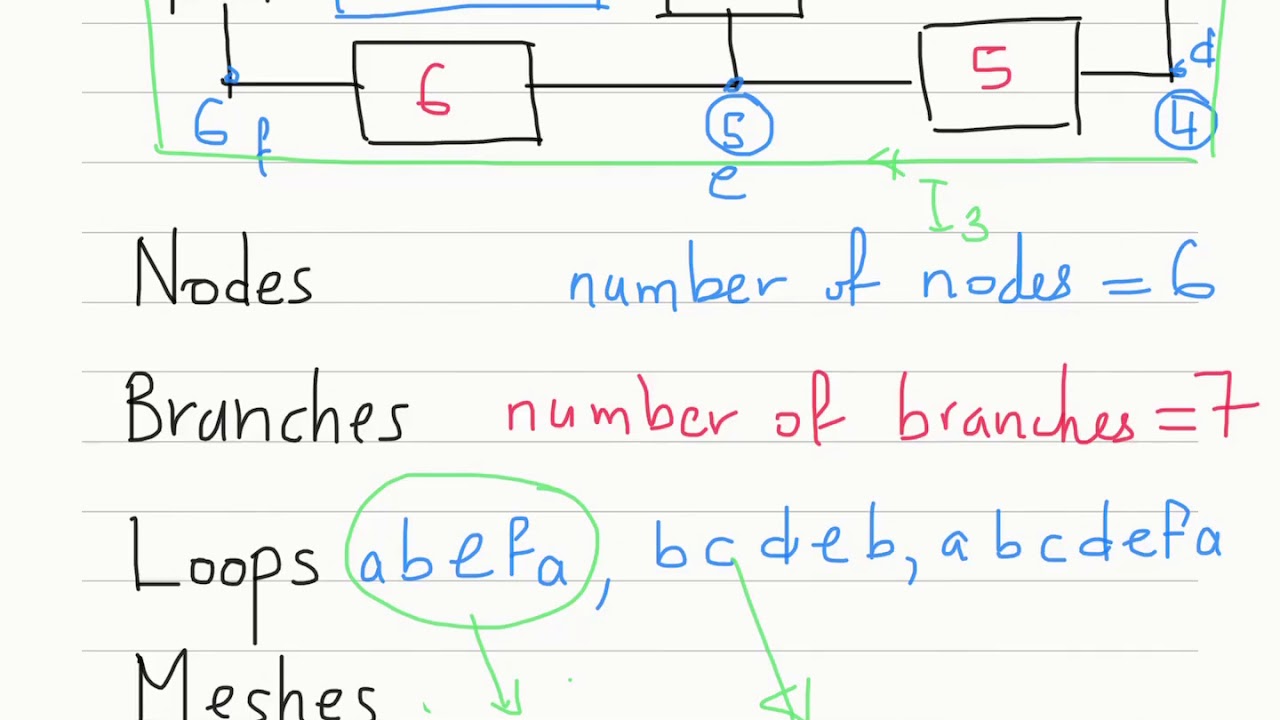 6 5 d
6 f 5 4
e I3
Nodes number of nodes = 6
Branches number of branches = 7
Loops abefa, bcdeb, abcdefa
Meshes